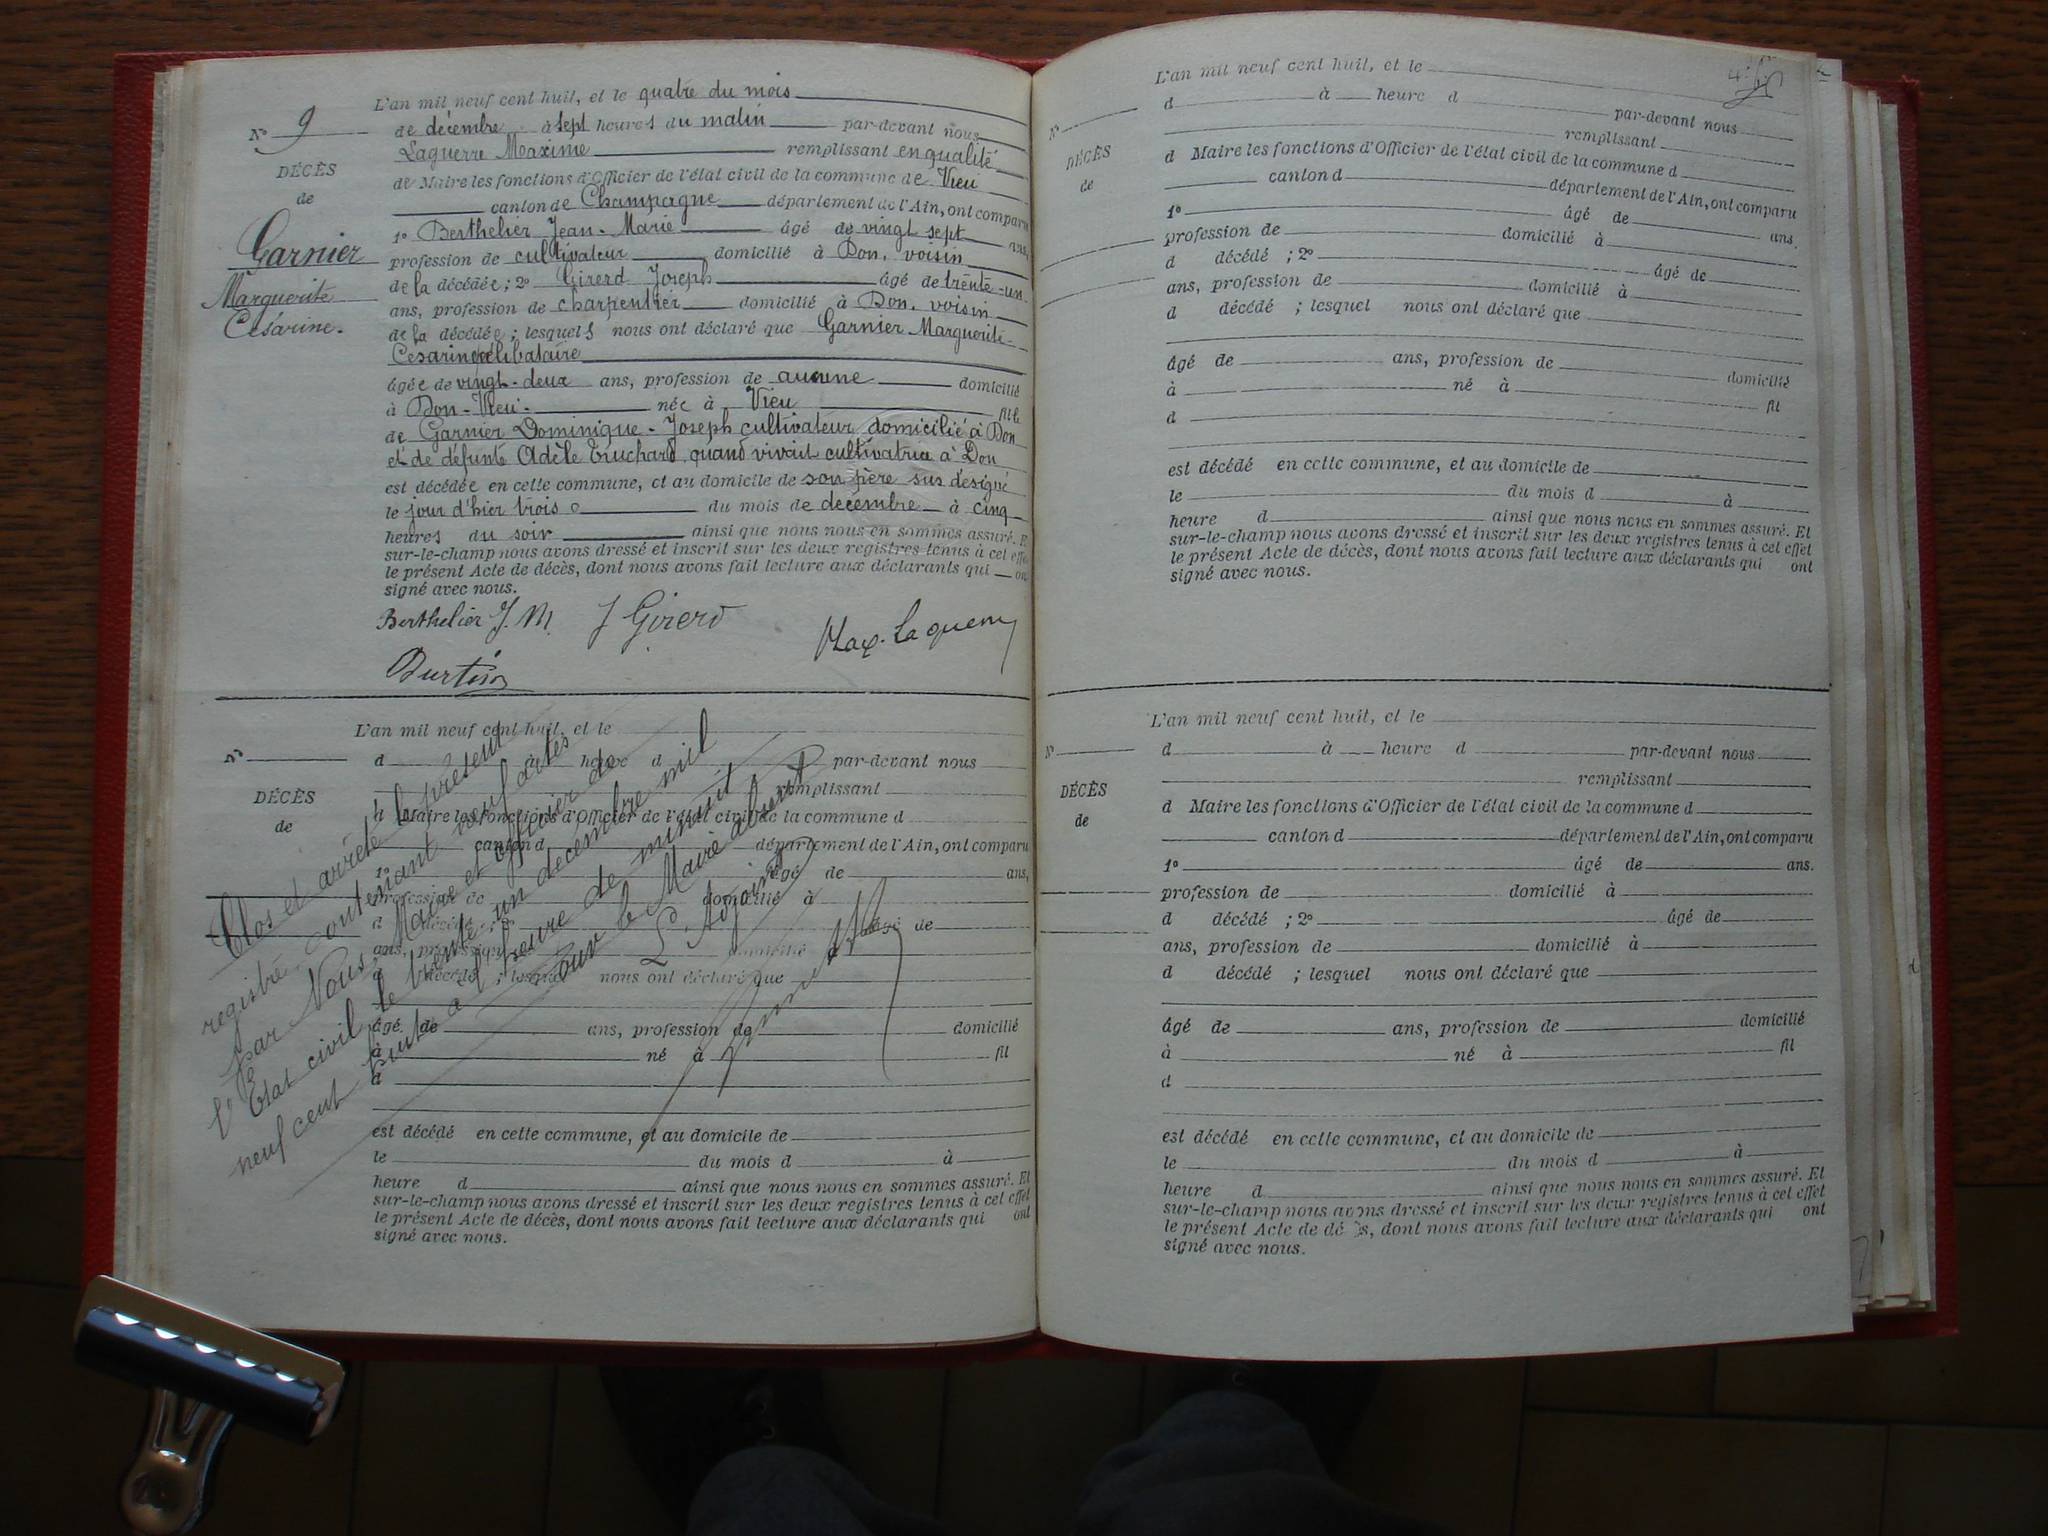 L'an mil neuf cent huit, et le quatre du mois
N° 9
de décembre à sept heures du matin par-devant nous
Laguerre Maxime remplissant en qualité
DÉCÈS
de Maire les fonctions d'Officier de l'état civil de la commune de Vieu
de
canton de Champagne département de l'Ain, ont comparu
Garnier
1° Berthelier Jean-Marie âgé de vingt sept ans,
profession de cultivateur domicilié à Don, voisin
Marguerite
de la décédée; 2° Girerd Joseph âgé de trente-un
ans, profession de charpentier domicilié à Don, voisin
Césarine.
de la décédée; lesquels nous ont déclaré que Garnier Marguerite-
Cesarine célibataire
âgée de vingt-deux ans, profession de aucune domicilié
à Don-Vieu- née à Vieu fille
de Garnier Dominique-Joseph cultivateur domicilié à Don
et de défunte Adèle Truchard quand vivait cultivatrice à Don
est décédée en cette commune, et au domicile de son père sus désigné
le jour d'hier trois du mois de décembre à cinq
heures du soir ainsi que nous nous en sommes assuré. Et
sur-le-champ nous avons dressé et inscrit sur les deux registres tenus à cet effet
le présent Acte de décès, dont nous avons fait lecture aux déclarants qui ont
signé avec nous.
Berthelier J. M. J Girerd Max. Laguerre
L'an mil neuf cent huit, et le
N°
d à heure d par-devant nous
remplissant
DÉCÈS
d Maire les fonctions d'Officier de l'état civil de la commune d
de
canton d département de l'Ain, ont comparu
1° âgé de ans,
profession de domicilié à
d décédé ; 2° âgé de
ans, profession de domicilié à
d décédé ; lesquel nous ont déclaré que
âgé de ans, profession de domicilié
à né à fil
d
est décédé en cette commune, et au domicile de
le du mois d à
heure d ainsi que nous nous en sommes assuré. Et
sur-le-champ nous avons dressé et inscrit sur les deux registres tenus à cet effet
le présent Acte de décès, dont nous avons fait lecture aux déclarants qui ont
signé avec nous.
Clos et arrêté le présent
registre contenant neuf actes
par Nous, Maire et officier de
l'Etat civil le trente-un décembre mil
neuf cent huit à l'heure de minuit
Pour le Maire absent
L'Adjoint
L'an mil neuf cent huit, et le
N°
d à heure d par-devant nous
remplissant
DÉCÈS
d Maire les fonctions d'Officier de l'état civil de la commune d
de
canton d département de l'Ain, ont comparu
1° âgé de ans.
profession de domicilié à
d décédé ; 2° âgé de
ans, profession de domicilié à
d décédé ; lesquel nous ont déclaré que
âgé de ans, profession de domicilié
à né à fil
d
est décédé en cette commune, et au domicile de
le du mois d à
heure d ainsi que nous nous en sommes assuré. Et
sur-le-champ nous avons dressé et inscrit sur les deux registres tenus à cet effet
le présent Acte de décès, dont nous avons fait lecture aux déclarants qui ont
signé avec nous.
L'an mil neuf cent huit, et le
N°
d à heure d par-devant nous
remplissant
DÉCÈS
d Maire les fonctions d'Officier de l'état civil de la commune d
de
canton d département de l'Ain, ont comparu
1° âgé de ans.
profession de domicilié à
d décédé ; 2° âgé de
ans, profession de domicilié à
d décédé ; lesquel nous ont déclaré que
âgé de ans, profession de domicilié
à né à fil
d
est décédé en cette commune, et au domicile de
le du mois d à
heure d ainsi que nous nous en sommes assuré. Et
sur-le-champ nous avons dressé et inscrit sur les deux registres tenus à cet effet
le présent Acte de décès, dont nous avons fait lecture aux déclarants qui ont
signé avec nous.